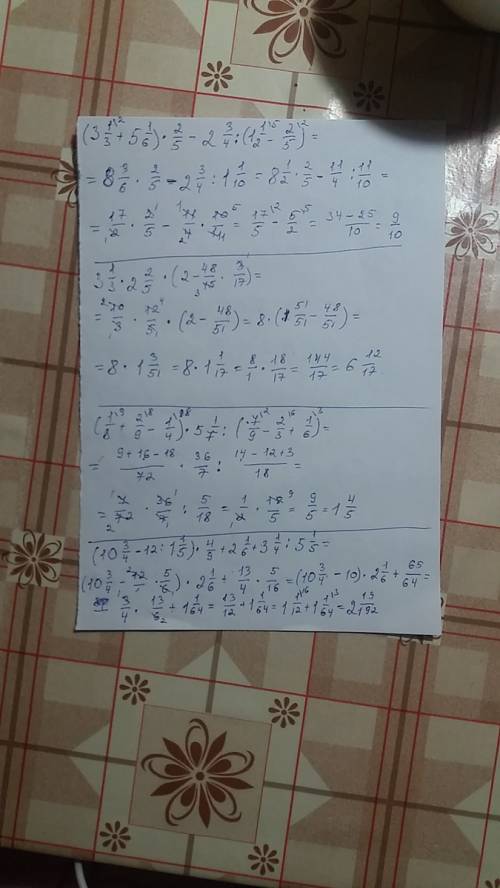 (3 1/3\2 + 5 1/6) · 2/5 - 2 3/4 : (1 1/2\5 - 2/5\2) =
= 8 3/6 · 2/5 - 2 3/4 : 1 1/10 = 8 1/2 · 2/5 - 11/4 : 11/10 =
= 17/2 · 2/5 - 11/4 · 10/11 = 17/5\2 - 5/2\5 = 34-25/10 = 9/10
3 1/3 · 2 2/5 · (2 - 48/75 · 3/17) =
= 10/3 · 12/5 · (2 - 48/51) = 8 · (1 51/51 - 48/51) =
= 8 · 1 3/51 = 8 · 1 1/17 = 8/1 · 18/17 = 144/17 = 6 12/17
(1/8\9 + 2/9\8 - 1/4\18) · 5 1/7 : (7/9\2 - 2/3\6 + 1/6\3) =
= 9+16-18/72 · 36/7 : 14-12+3/18 =
= 7/72 · 36/7 : 5/18 = 1/2 · 18/5 = 9/5 = 1 4/5
(10 3/4 - 12 : 1 1/5) · 4/5 + 2 1/6 + 3 1/4 : 5 1/5 =
(10 3/4 - 12/1 · 5/6) · 2 1/6 + 13/4 · 5/16 = (10 3/4 - 10) · 2 1/6 + 65/64 =
3/4 · 13/6 + 1 1/64 = 13/12 + 1 1/64 = 1 1/12\16 + 1 1/64\3 = 2 13/192